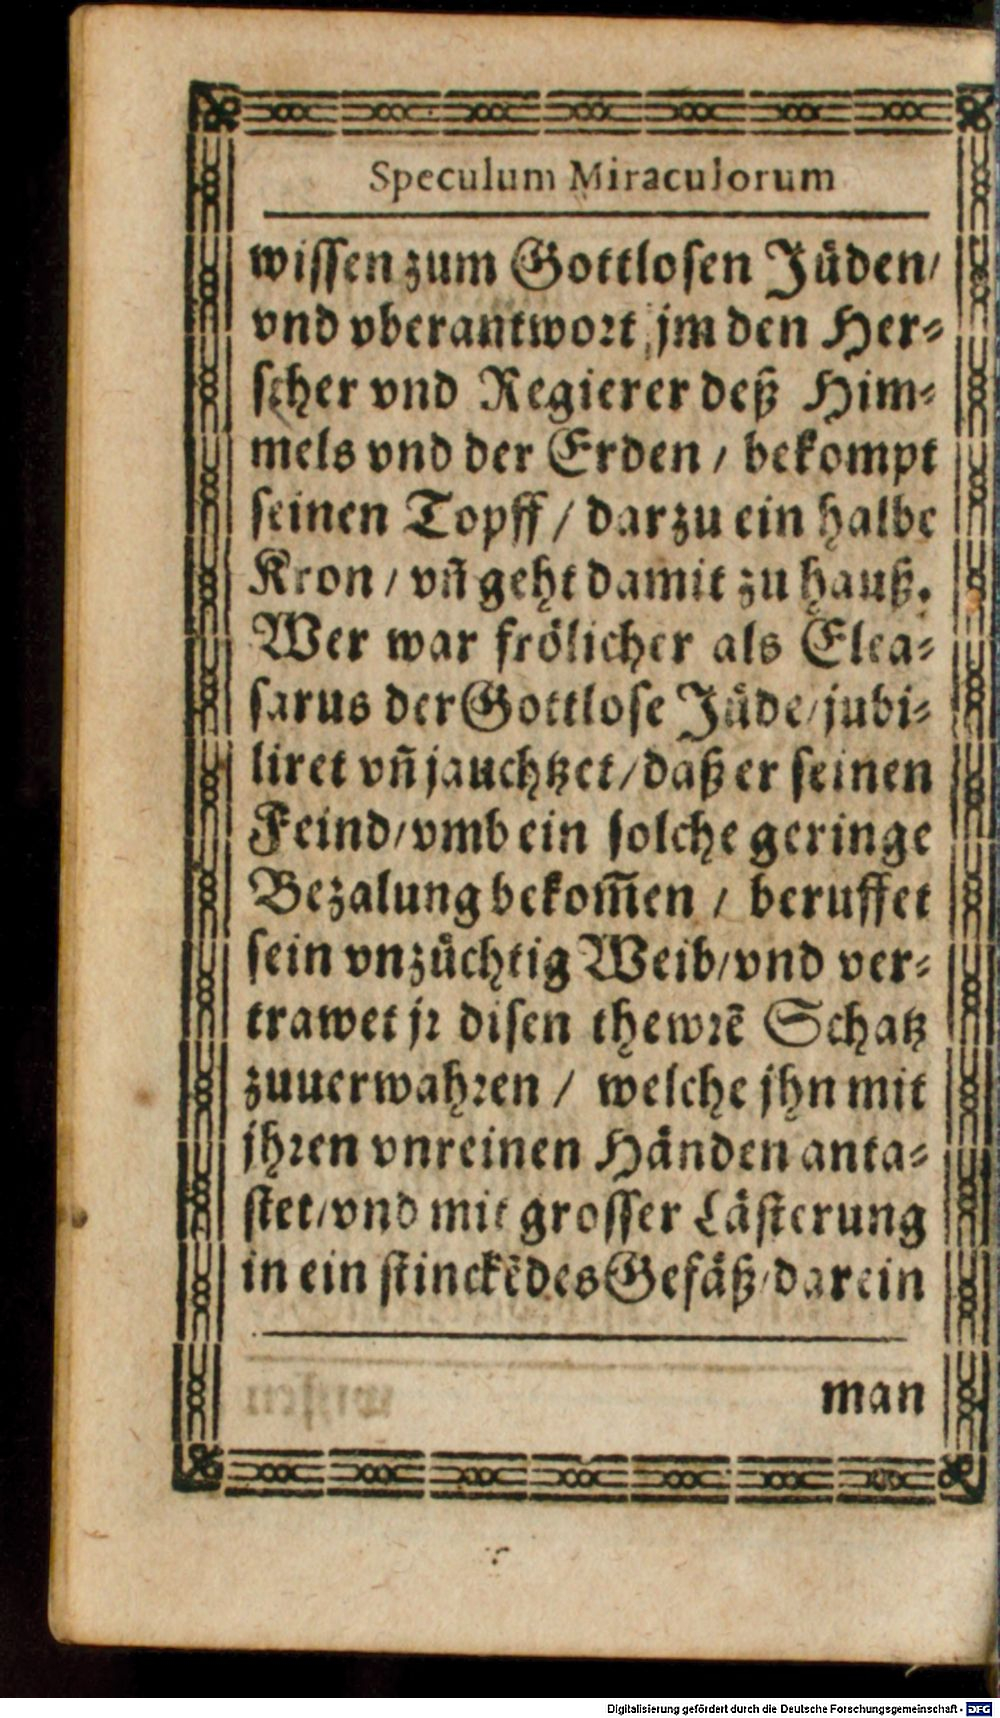 Speculum Miraculorum
wissen zum Gottlosen Jüden/
vnd vberantwort jm den Her⸗
scher vnd Regierer deß Him⸗
mels vnd der Erden / bekompt
seinen Topff / darzu ein halbe
Kron / vñ geht damit zu hauß.
Wer war frölicher als Elea⸗
sarus der Gottlose Jüde/jubi⸗
liret vñ jauchtzet/daß er seinen
Feind/vmb ein solche geringe
Bezalung bekom̃en / beruffet
sein vnzüchtig Weib/vnd ver⸗
trawet jr disen thewrẽ Schatz
zuuerwahren / welche jhn mit
jhren vnreinen Händen anta⸗
stet/vnd mit grosser Lästerung
in ein stinckẽdes Gefäß/darein
man
Digitalisierung gefördert durch die Deutsche Forschungsgemeinschaft - DFG